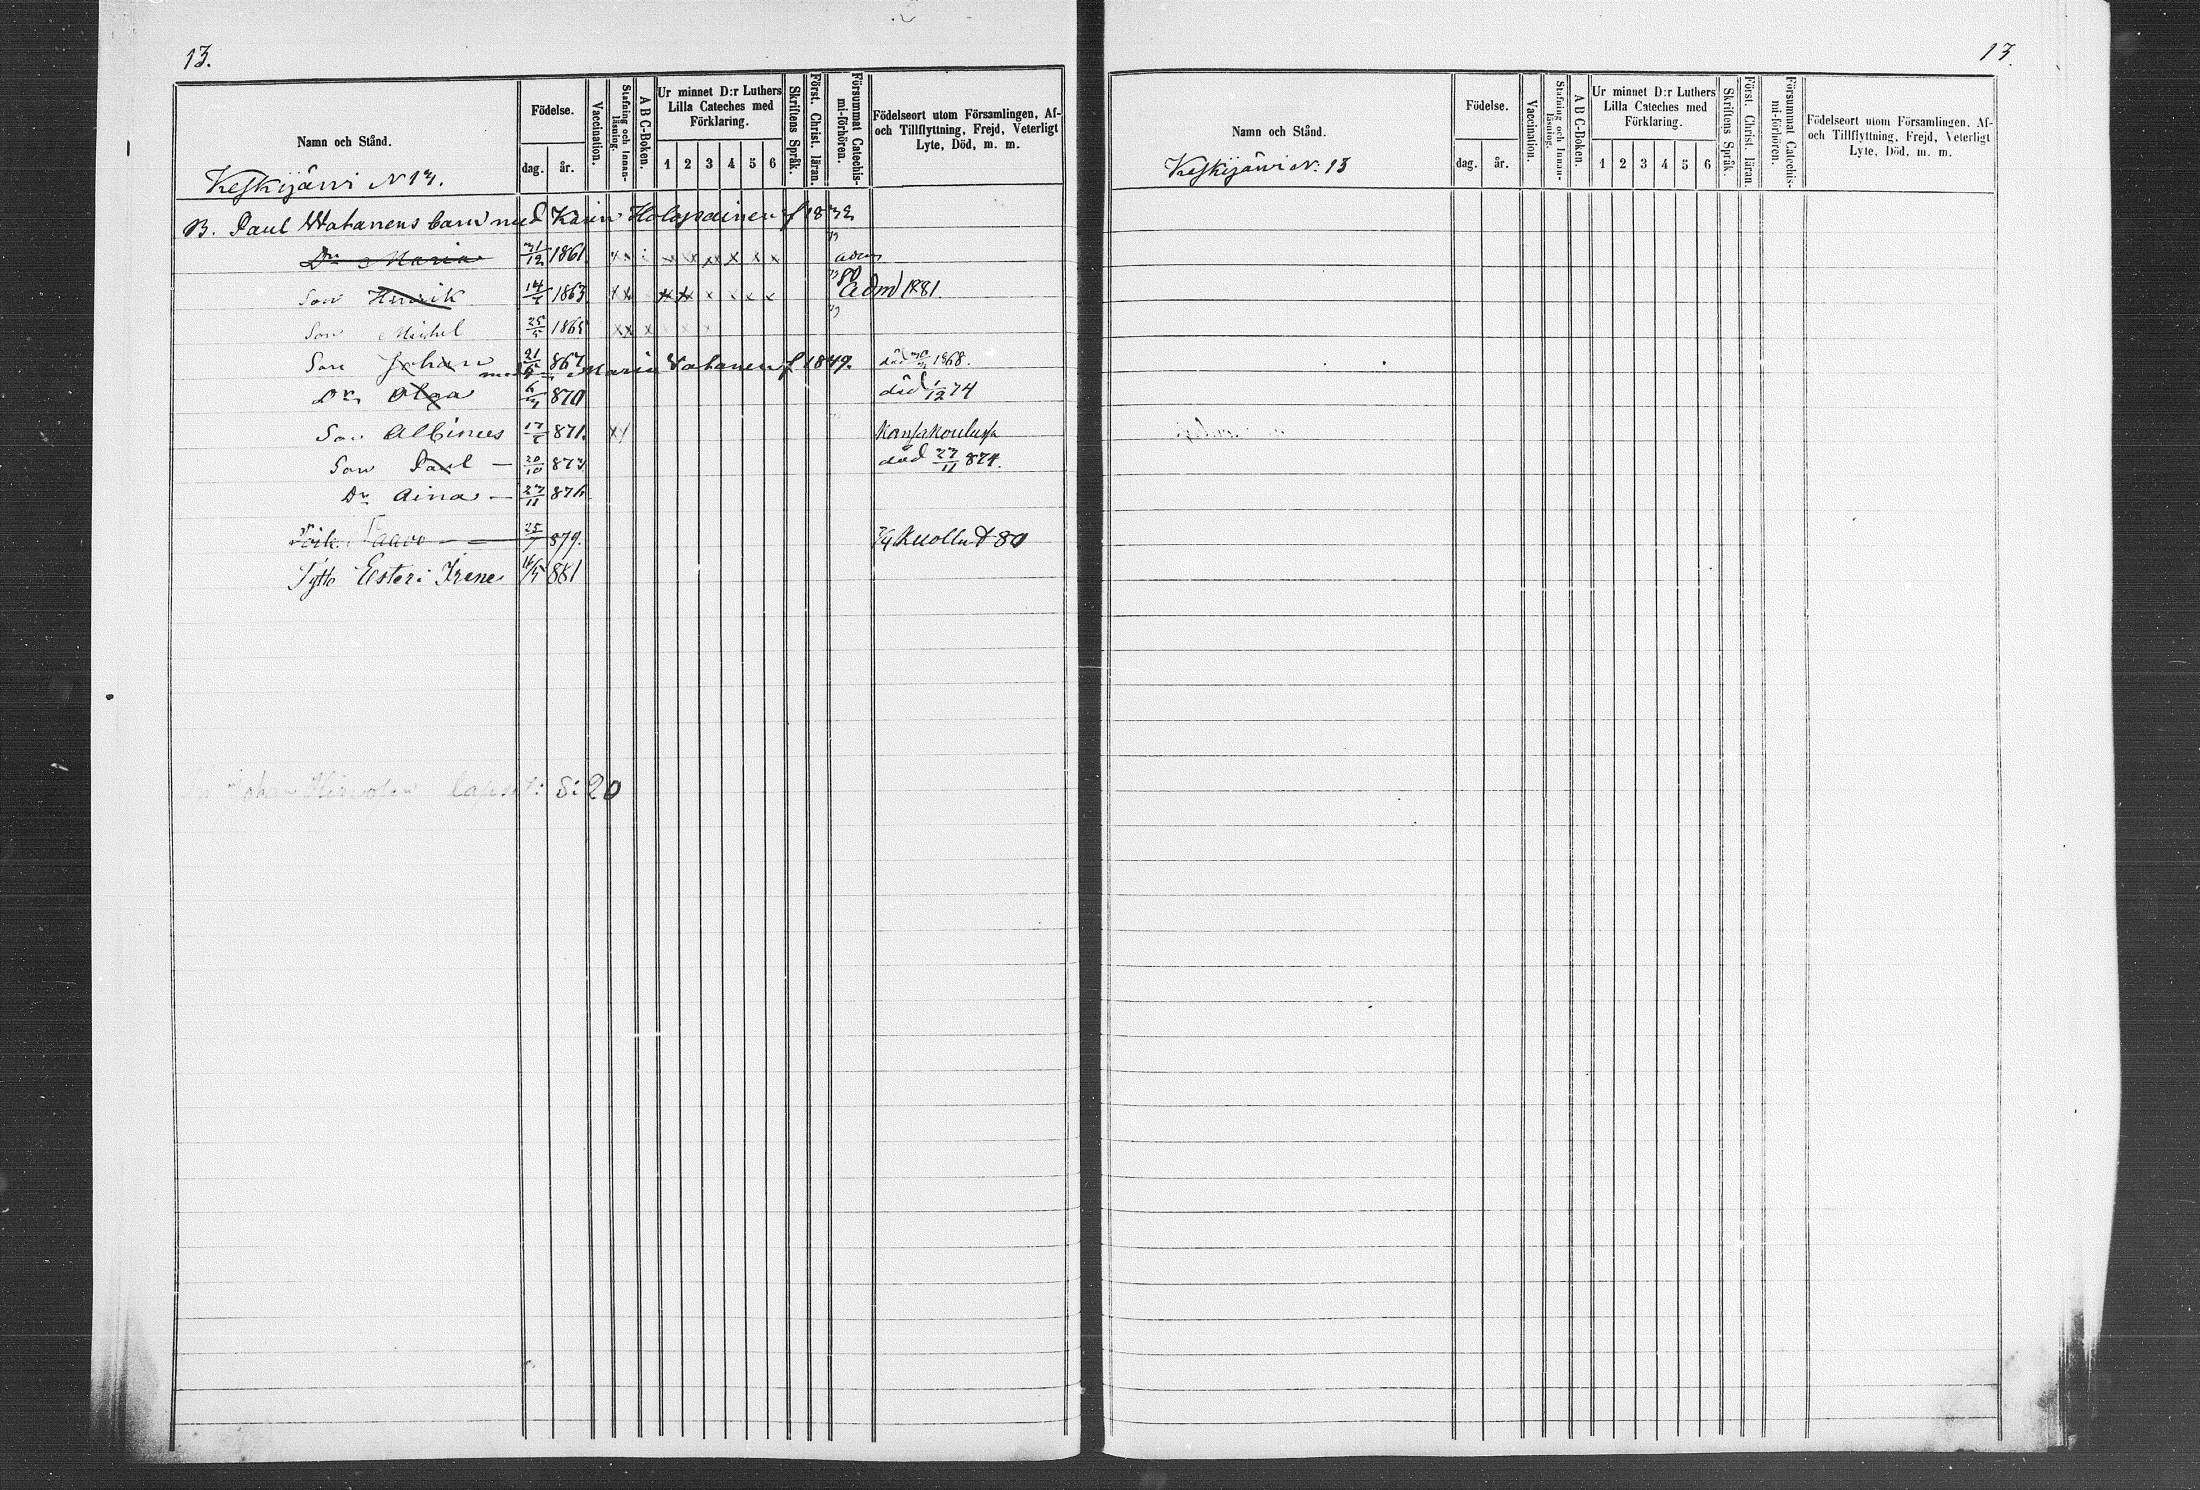 13.
Namn och Stånd.
Födelse.
dag. år.
Vaccination.
Stafning och Innanläsning.
A B C-Boken.
Ur minnet D:r Luthers Lilla Cateches med Förklaring.
1 2 3 4 5 6
Skriftens Språk.
Först. Christ. läran.
Försummat Catechismi-förhören.
Födelseort utom Församlingen, Af- och Tillflyttning, Frejd, Veterligt Lyte, Död, m. m.
Keskijärvi N 13.
B. Paul Watanens barn med Karin Holopainen f 1832
Dr Maria 31/12 1861. x x x x x x adm
80
Son Henrik 14/ 1863 x x x x x x x x adm 1881.
Son Michel 25/5 1865 x x x x
Son Johan 21/ 867 död 1868.
med Maria Vatanen f 1849.
Dr Olga 6/ 870 död 1/12 74
Son Albinus 17/ 871. x x Kansakoulussa
Son Paul — 20/10 873 död 27/11 874.
Dr Aina — 27/11 876
Poik. Paavo — 25/7 879. Kuollut 80
Tytt. Esteri Irene 881
Johan Hirvosen lapset: S: 20
13.
Namn och Stånd.
Födelse.
dag. år.
Vaccination.
Stafning och Innanläsning.
A B C-Boken.
Ur minnet D:r Luthers Lilla Cateches med Förklaring.
1 2 3 4 5 6
Skriftens Språk.
Först. Christ. läran.
Försummat Catechismi-förhören.
Födelseort utom Församlingen, Af- och Tillflyttning, Frejd, Veterligt Lyte, Död, m. m.
Keskijärvi N: 13